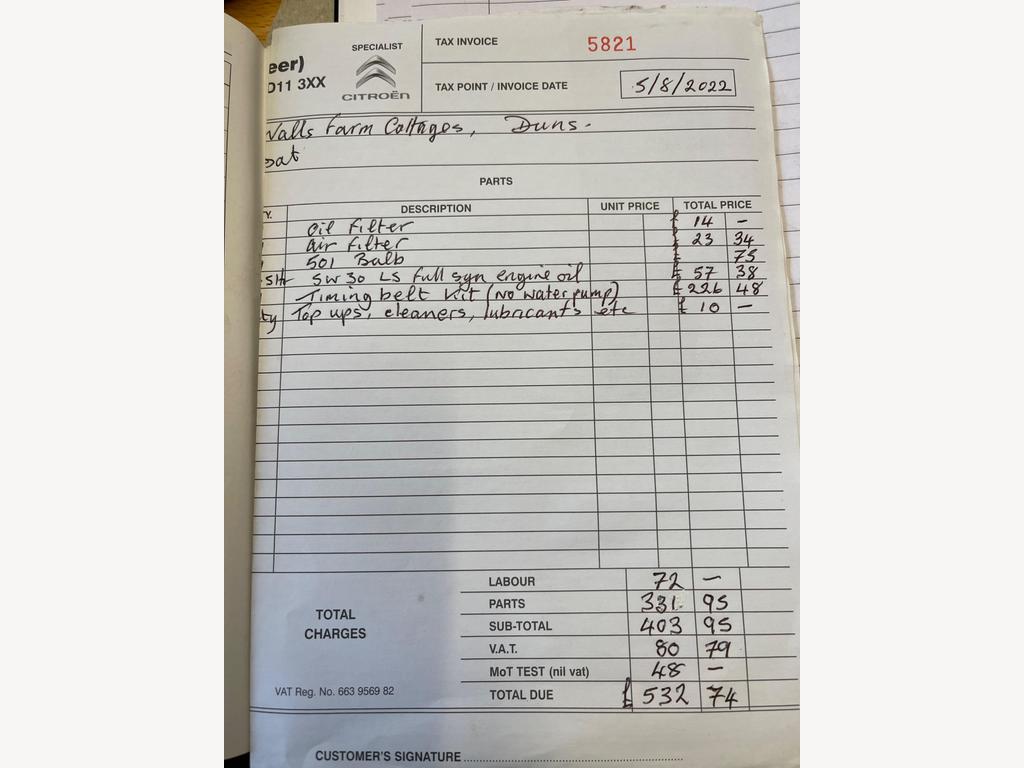 SPECIALIST
CITROËN
eer)
D11 3XX
TAX INVOICE 5821
TAX POINT / INVOICE DATE 5/8/2022
Walls Farm Cottages, Duns.
oat
PARTS
Y. DESCRIPTION UNIT PRICE TOTAL PRICE
Oil Filter £ 14 –
Air Filter £ 23 34
501 Bulb 75
5W30 LS full syn engine oil £ 57 38
Timing belt kit (No water pump) £ 226 48
ty Top ups, cleaners, lubricants etc £ 10 –
TOTAL CHARGES
LABOUR 72 –
PARTS 331. 95
SUB-TOTAL 403 95
V.A.T. 80 79
MoT TEST (nil vat) 48 –
TOTAL DUE £ 532 74
VAT Reg. No. 663 9569 82
CUSTOMER'S SIGNATURE